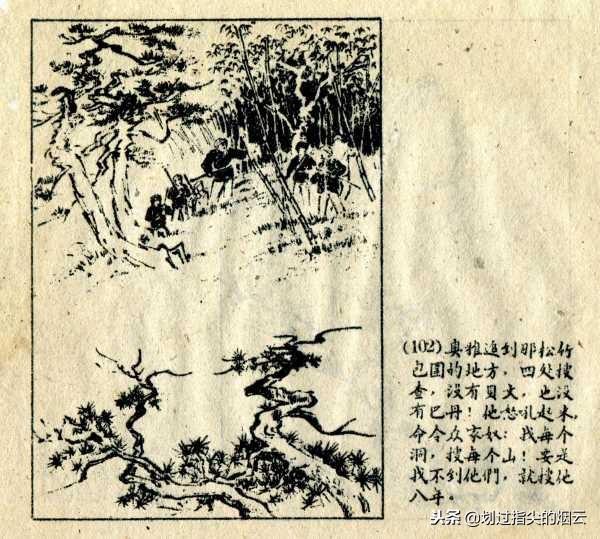 (102)奥雅追到那松竹
包围的地方,四处搜
查,没有贝文,也没
有巴丹!他怒吼起来,
命令众家奴:找每个
洞,搜每个山!要是
找不到他們,就搜他
八年。
头条 @划过指尖的烟云